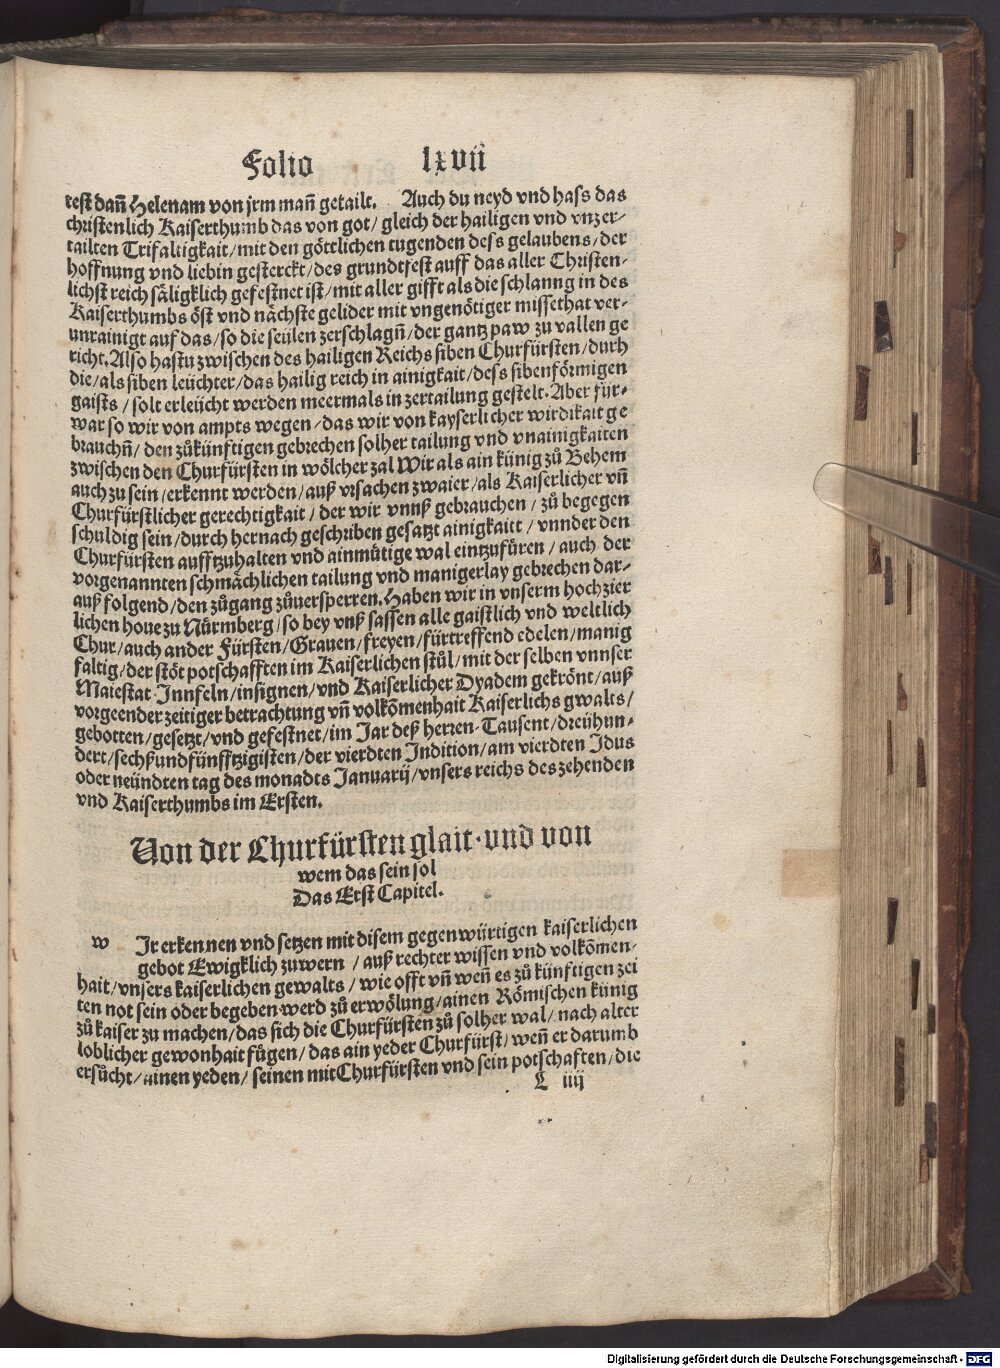 Folio lxvii
test dañ Helenam von jrm mañ getailt. Auch du neyd vnd hass das
christenlich Kaiserthumb das von got/ gleich der hailigen vnd vnzer-
tailten Trifaltigkait/ mit den göttlichen tugenden dess gelaubens/ der
hoffnung vnd liebin gesterckt/ des grundtfest auff das aller Christen-
lichst reich säligklich gefestnet ist/ mit aller gifft als die schlanng in des
Kaiserthumbs öst vnd nächste gelider mit vngenötiger missethat ver-
unrainigt auf das/ so die seülen zerschlagñ/ der gantz paw zu vallen ge
richt. Also hastu zwischen des hailigen Reichs siben Churfürsten/ durh
die/ als siben leüchter/ das hailig reich in ainigkait/ dess sibenförmigen
gaists / solt erleücht werden meermals in zertailung gestelt. Aber für-
war so wir von ampts wegen/ das wir von kayserlicher wirdikait ge
brauchñ/ den zůkünftigen gebrechen solher tailung vnd vnainigkaiten
zwischen den Churfürsten in wölcher zal Wir als ain künig zů Behem
auch zu sein/ erkennt werden/ auß vrsachen zwaier/ als Kaiserlicher vñ
Churfürstlicher gerechtigkait/ der wir vnnß gebrauchen / zů begegen
schuldig sein/ durch hernach geschriben gesatzt ainigkaitt / vnnder den
Churfürsten aufftzuhalten vnd ainmütige wal eintzufüren / auch der
vorgenannten schmächlichen tailung vnd manigerlay gebrechen dar-
auß folgend/ den zůgang zůuersperren. Haben wir in vnserm hochzier
lichen houe zu Nürmberg/ so bey vnß sassen alle gaistlich vnd weltlich
Chur/ auch ander Fürsten/ Grauen/ freyen/ fürtreffend edelen/ manig
faltig/ der stöt potschafften im Kaiserlichen stůl/ mit der selben vnnser
Maiestat Innfeln/ insignen/ vnd Kaiserlicher Dyadem gekrönt/ auß
vorgeender zeitiger betrachtung vñ volkömenhait Kaiserlichs gwalts/
gebotten/ gesetzt/ vnd gefestnet/ im Jar deß herren Tausent/ dreühun-
dert/ sechßundfünfftzigisten/ der vierdten Indition/ am vierdten Idus
oder neündten tag des monadts Januarij/ vnsers reichs des zehenden
vnd Kaiserthumbs im Ersten.
Von der Churfürsten glait·vnd von
wem das sein sol
Das Erst Capitel.
w Ir erkennen vnd setzen mit disem gegenwürtigen kaiserlichen
gebot Ewigklich zuwern / auß rechter wissen vnd volkömen-
hait/ vnsers kaiserlichen gewalts/ wie offt vñ weñ es zů künftigen zei
ten not sein oder begeben werd zů erwölung/ ainen Römischen künig
zů kaiser zu machen/ das sich die Churfürsten zů solher wal/ nach alter
loblicher gewonhait fügen/ das ain yeder Churfürst/ weñ er darumb
ersůcht/ ainen yeden/ seinen mitChurfürsten vnd sein potschaften/ die
L iiij
Digitalisierung gefördert durch die Deutsche Forschungsgemeinschaft - DFG